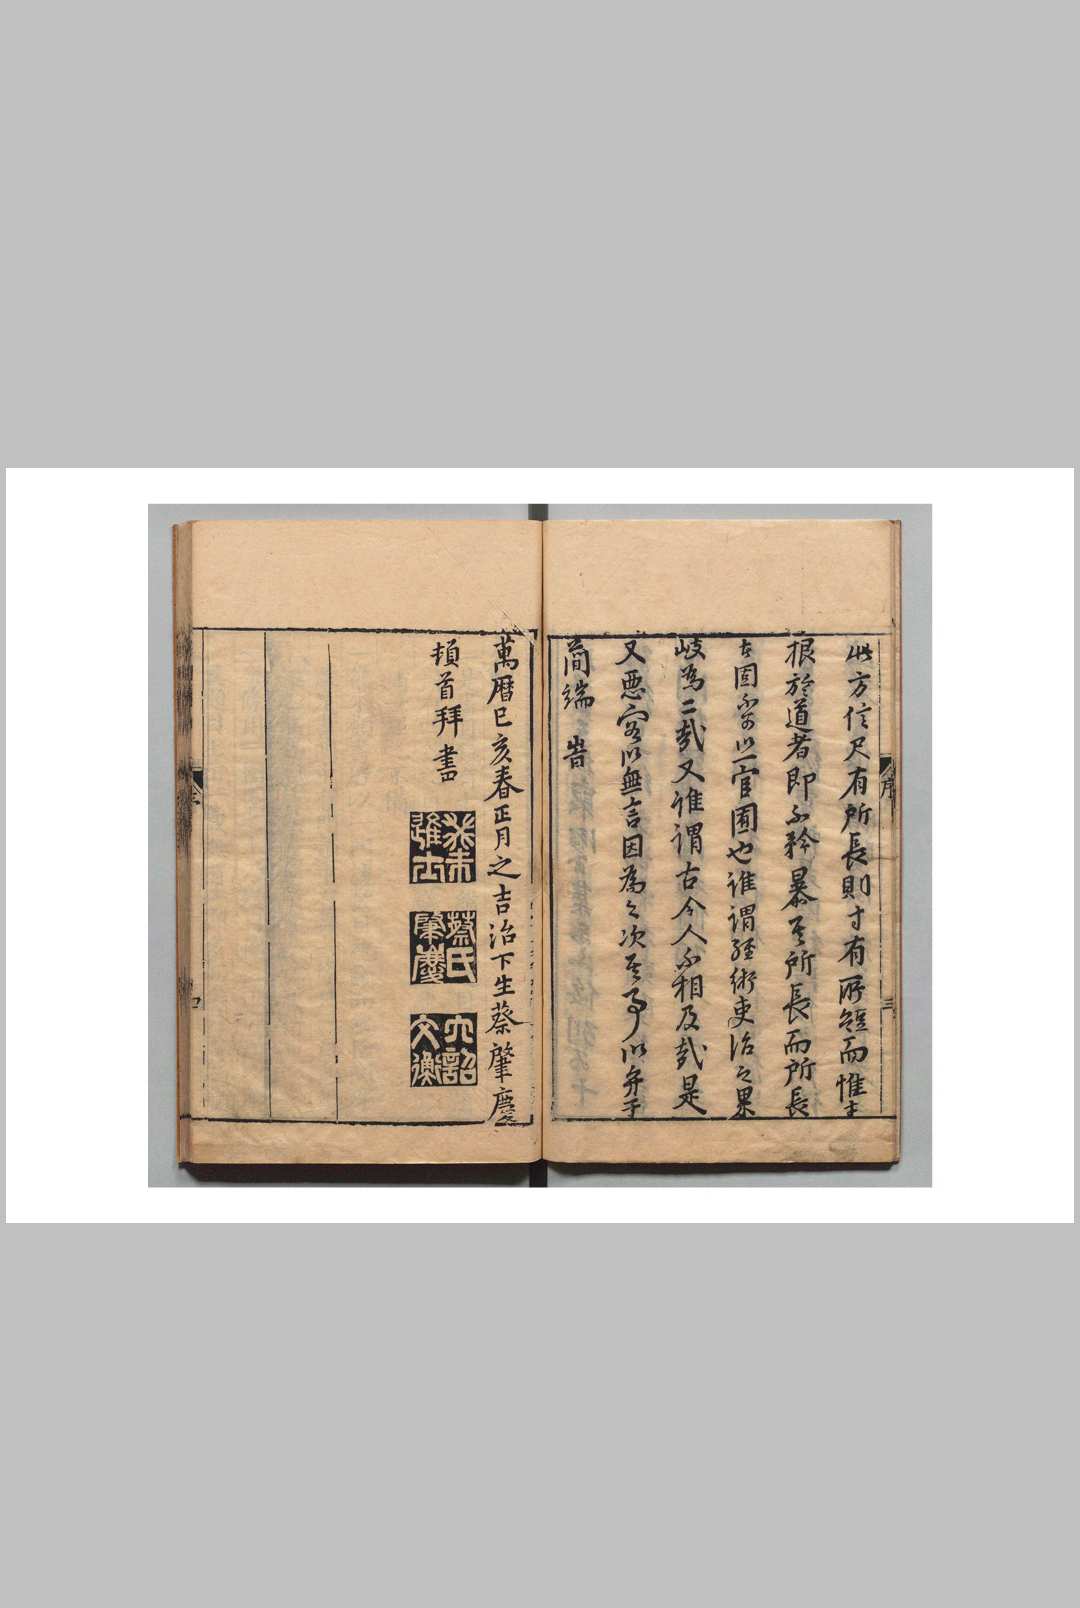 此方信尺有所長則寸有所短而惟士
根於道者即不矜暴其所長而所長
士固不可以一官囿也誰謂經術吏治之果
岐為二哉又誰謂古今人不相及哉是
又惡容以無言因為之次其事以弁于
簡端 旹
序
三
萬曆己亥春正月之吉治下生蔡肇慶
頓首拜書
癸未進士
蔡氏肇慶
六詔文衡
四